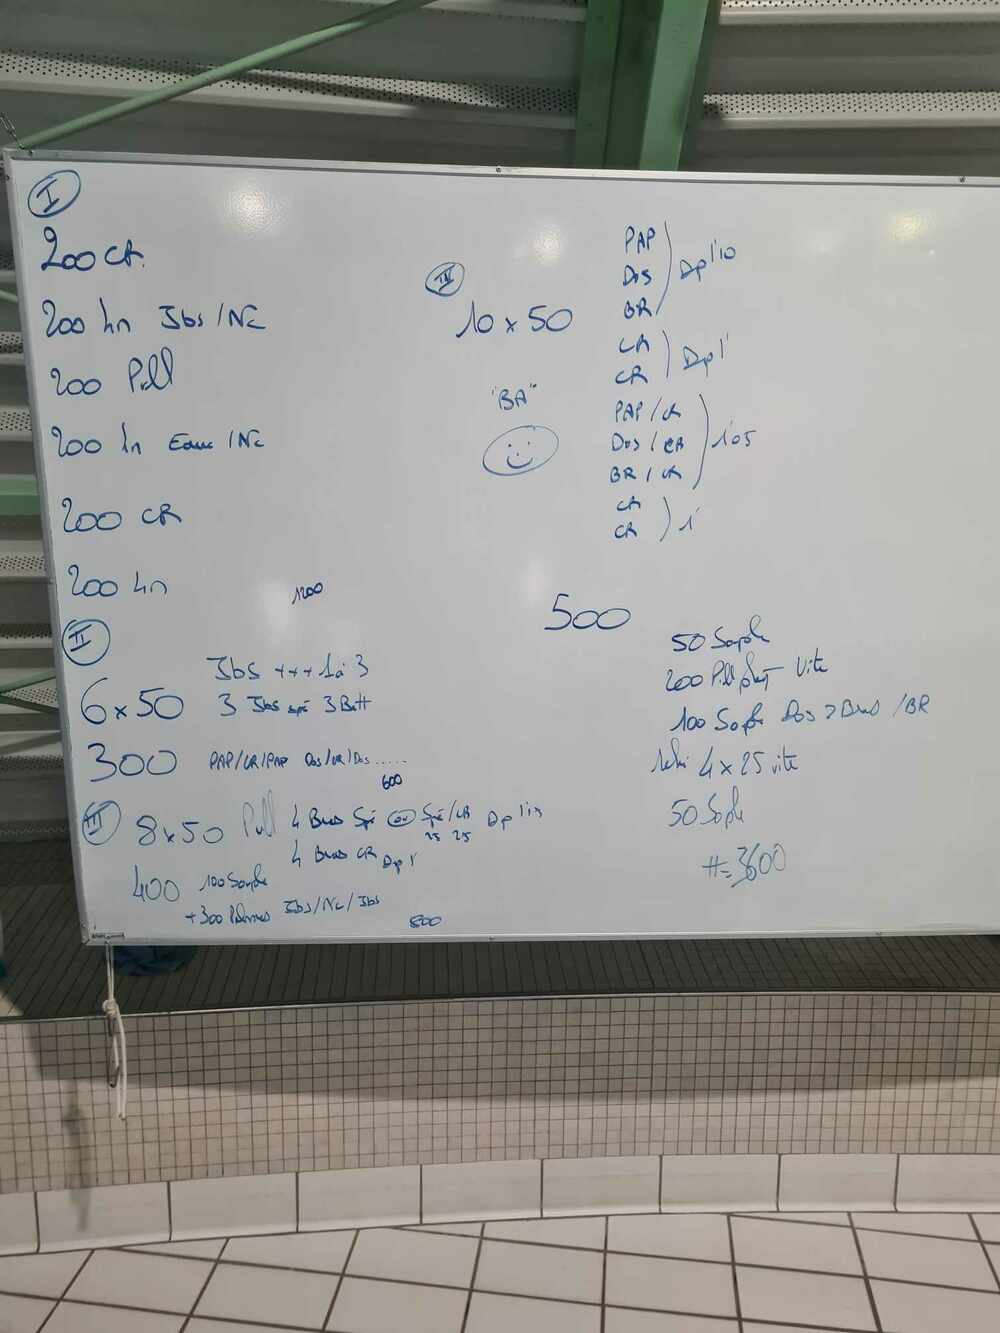 I
200 CR.
200 4n Jbs / NC
200 Pull
200 4n Educ / NC
200 CR
200 4n
1200
II
6 x 50
Jbs +++ 1 à 3
3 Jbs spé 3 Batt
300 PAP/CR/PAP Dos/CR/Dos .....
600
III
8 x 50 Pull 4 Bras Spé ou Spé/CR Dp 1'15
25 25
4 Bras CR Dp 1'
400 100 Souple
+ 300 Palmes Jbs/NC/Jbs
800
IV
10 x 50
"BA"
PAP
Dos
BR
Dp 1'10
CR
CR
Dp 1'
PAP / CR
Dos / CR
BR / CR
1'05
CR
CR
1'
500
50 Souple
200 Pull Vite
100 Souple Dos 2 Bras / BR
4 x 25 vite
50 Souple
= 3600